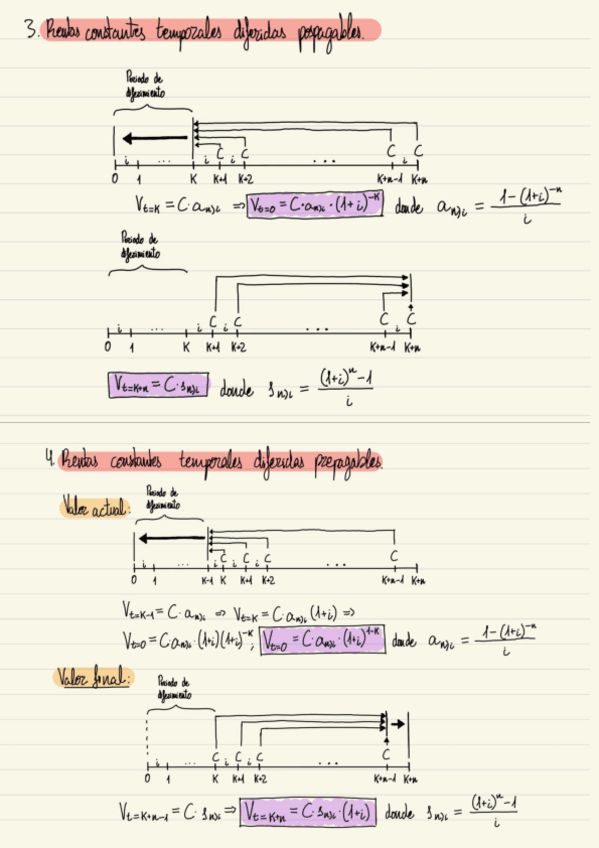 3. Rentas constantes temporales diferidas pospagables.
Periodo de
diferimiento
C C C C
i ... i i ... i
0 1 K K+1 K+2 K+n-1 K+n
V_{t=K} = C·a_{n⌉i} ⇒ V_{t=0} = C·a_{n⌉i}·(1+i)^{-K} donde a_{n⌉i} = \frac{1-(1+i)^{-n}}{i}
Periodo de
diferimiento
C C C C
i ... i i ... i
0 1 K K+1 K+2 K+n-1 K+n
V_{t=K+n} = C·s_{n⌉i} donde s_{n⌉i} = \frac{(1+i)^n-1}{i}
4. Rentas constantes temporales diferidas prepagables.
Valor actual:
Periodo de
diferimiento
C C C C
i ... i i i ...
0 1 K-1 K K+1 K+2 K+n-1 K+n
V_{t=K-1} = C·a_{n⌉i} ⇒ V_{t=K} = C·a_{n⌉i}(1+i) ⇒
V_{t=0} = C·a_{n⌉i}·(1+i)(1+i)^{-K}; V_{t=0} = C·a_{n⌉i}·(1+i)^{1-K} donde a_{n⌉i} = \frac{1-(1+i)^{-n}}{i}
Valor final:
Periodo de
diferimiento
C C C C
i ... i i ...
0 1 K K+1 K+2 K+n-1 K+n
V_{t=K+n-1} = C·s_{n⌉i} ⇒ V_{t=K+n} = C·s_{n⌉i}·(1+i) donde s_{n⌉i} = \frac{(1+i)^n-1}{i}